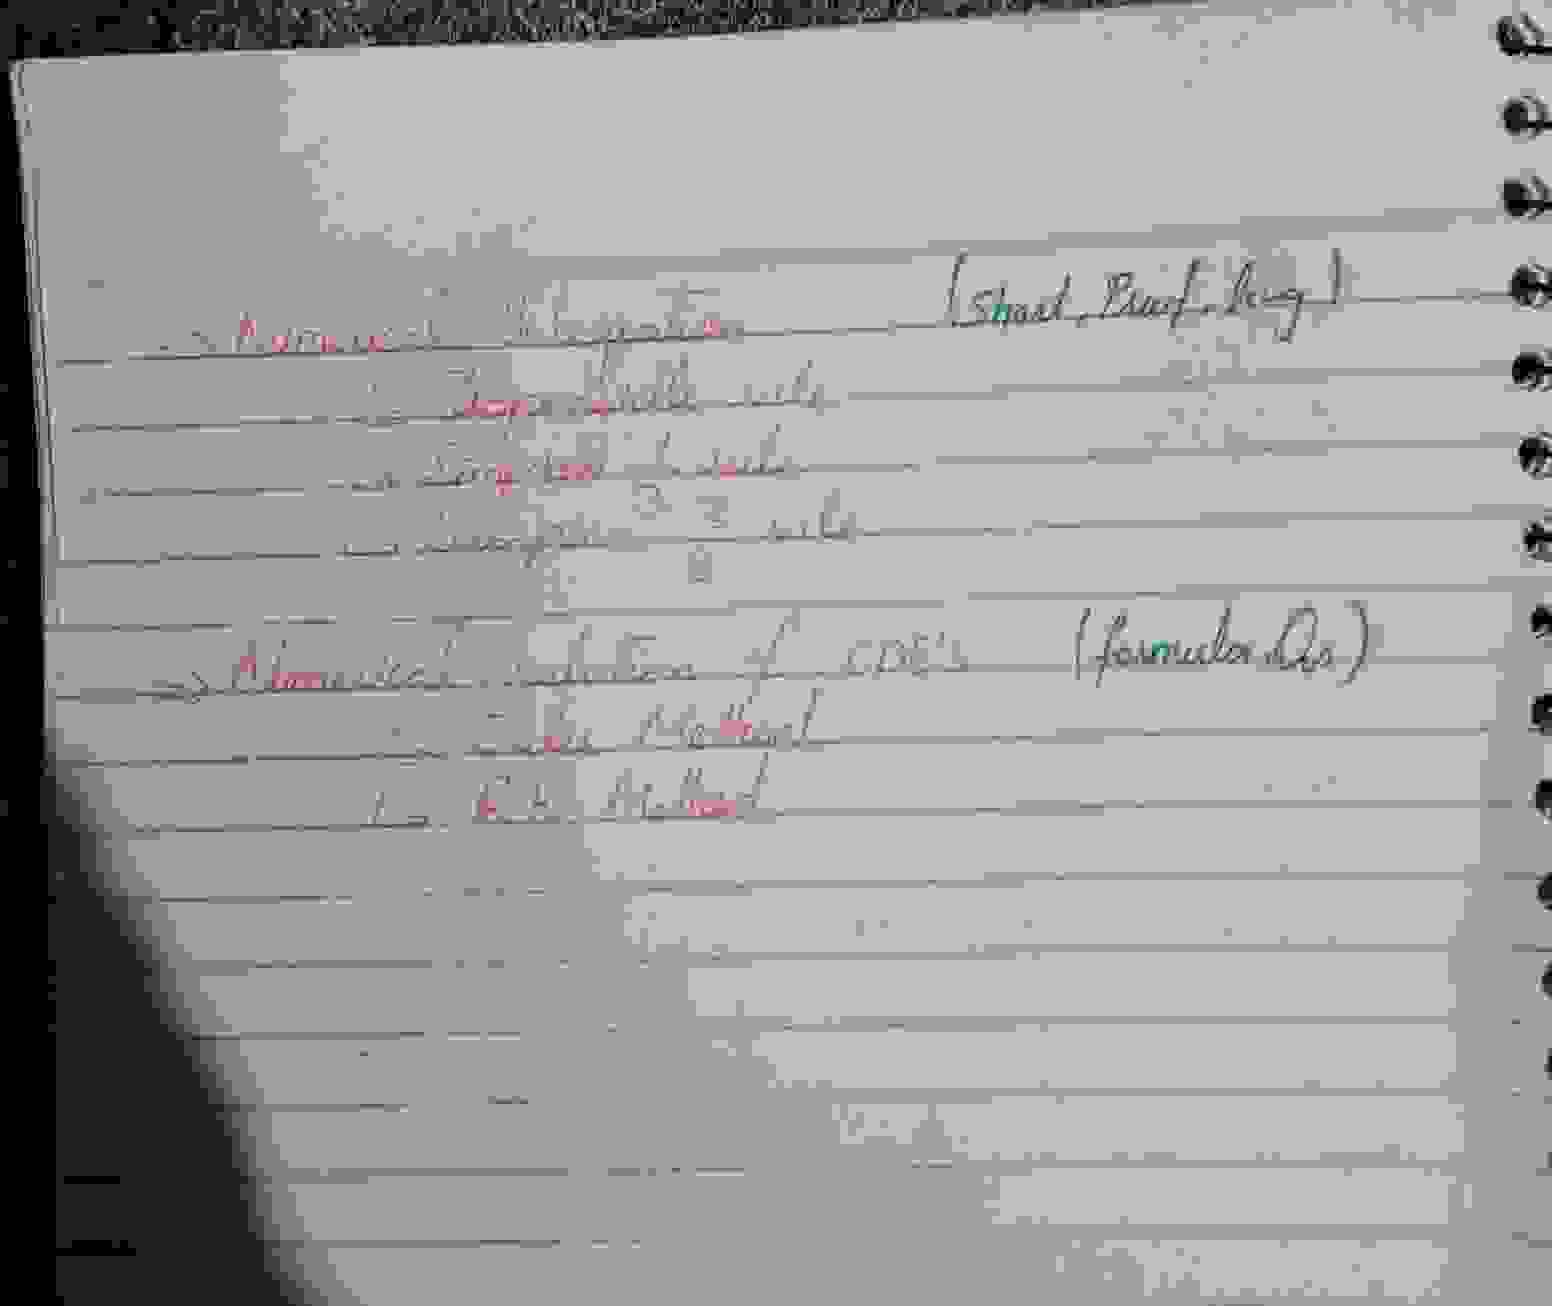 → Numerical Integration (Short, Brief, Long)
→ Trapezoidal rule
→ Simpson 1/3 rule
→ Simpson 3/8 rule
→ Numerical solution of ODE's (formula, Qs)
Method
Method